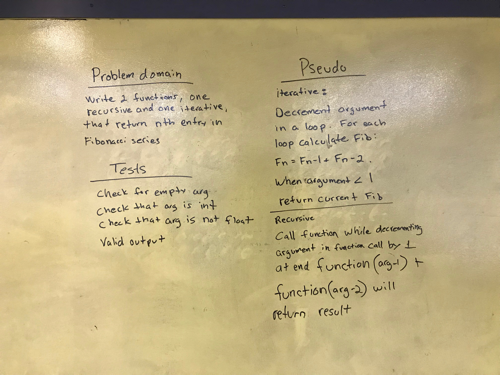 Problem domain
Write 2 functions, one
recursive and one iterative,
that return nth entry in
Fibonacci series
Tests
Check for empty arg
Check that arg is int
Check that arg is not float
Valid output
Pseudo
iterative:
Decrement argument
in a loop. For each
loop calculate Fib:
Fn = Fn-1 + Fn-2.
When argument < 1
return current Fib
Recursive
Call function while decrementing
argument in function call by 1
at end function(arg-1) +
function(arg-2) will
return result